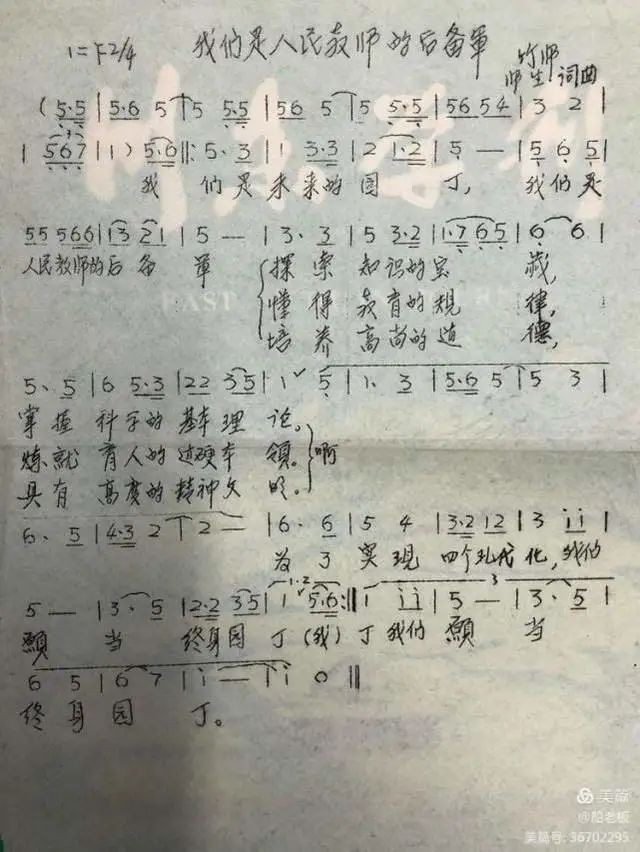 我们是人民教师的后备軍
1=F 2/4
竹师
师生 词曲
( 5·5 | 5·6 5 | 5 5·5 | 56 5 | 5 5·5 | 56 54 | 3 2 |
| 567 | 1 ) 5·6 ‖: 5· 3 | 1 3·3 | 2 1·2 | 5 — | 5 6 5 |
我 们是 未来的 园 丁, 我们是
55 566 | 13 21 | 5 — | 3· 3 | 5 3·2 | 1·7 65 | 6 6 |
人民教师的后 备 軍 探 索 知识的宝 藏,
懂 得 教育的规 律,
培 养 高尚的道 德,
5· 5 | 6 5·3 | 22 35 | 1 ˇ 5 | 1· 3 | 5·6 5 | 5 3 |
掌握 科学的 基本理 论。
炼就 育人的过硬本 领。啊
具有 高度的精神文 明。
6· 5 | 4·3 2 | 2 — | 6· 6 | 5 4 | 3·2 12 | 3 ii |
为 了 实现 四个现代 化,我们
1.2 3
5 — | 3· 5 | 2·2 35 | 1 5·6 :‖ 1 ii | 5 — | 3· 5 |
願 当 终身园 丁(我)丁我们 願 当
6 5 | 6 7 | i — | i 0 ‖
终 身 园 丁。
FAST
美篇
@船老板
美篇号: 36702295